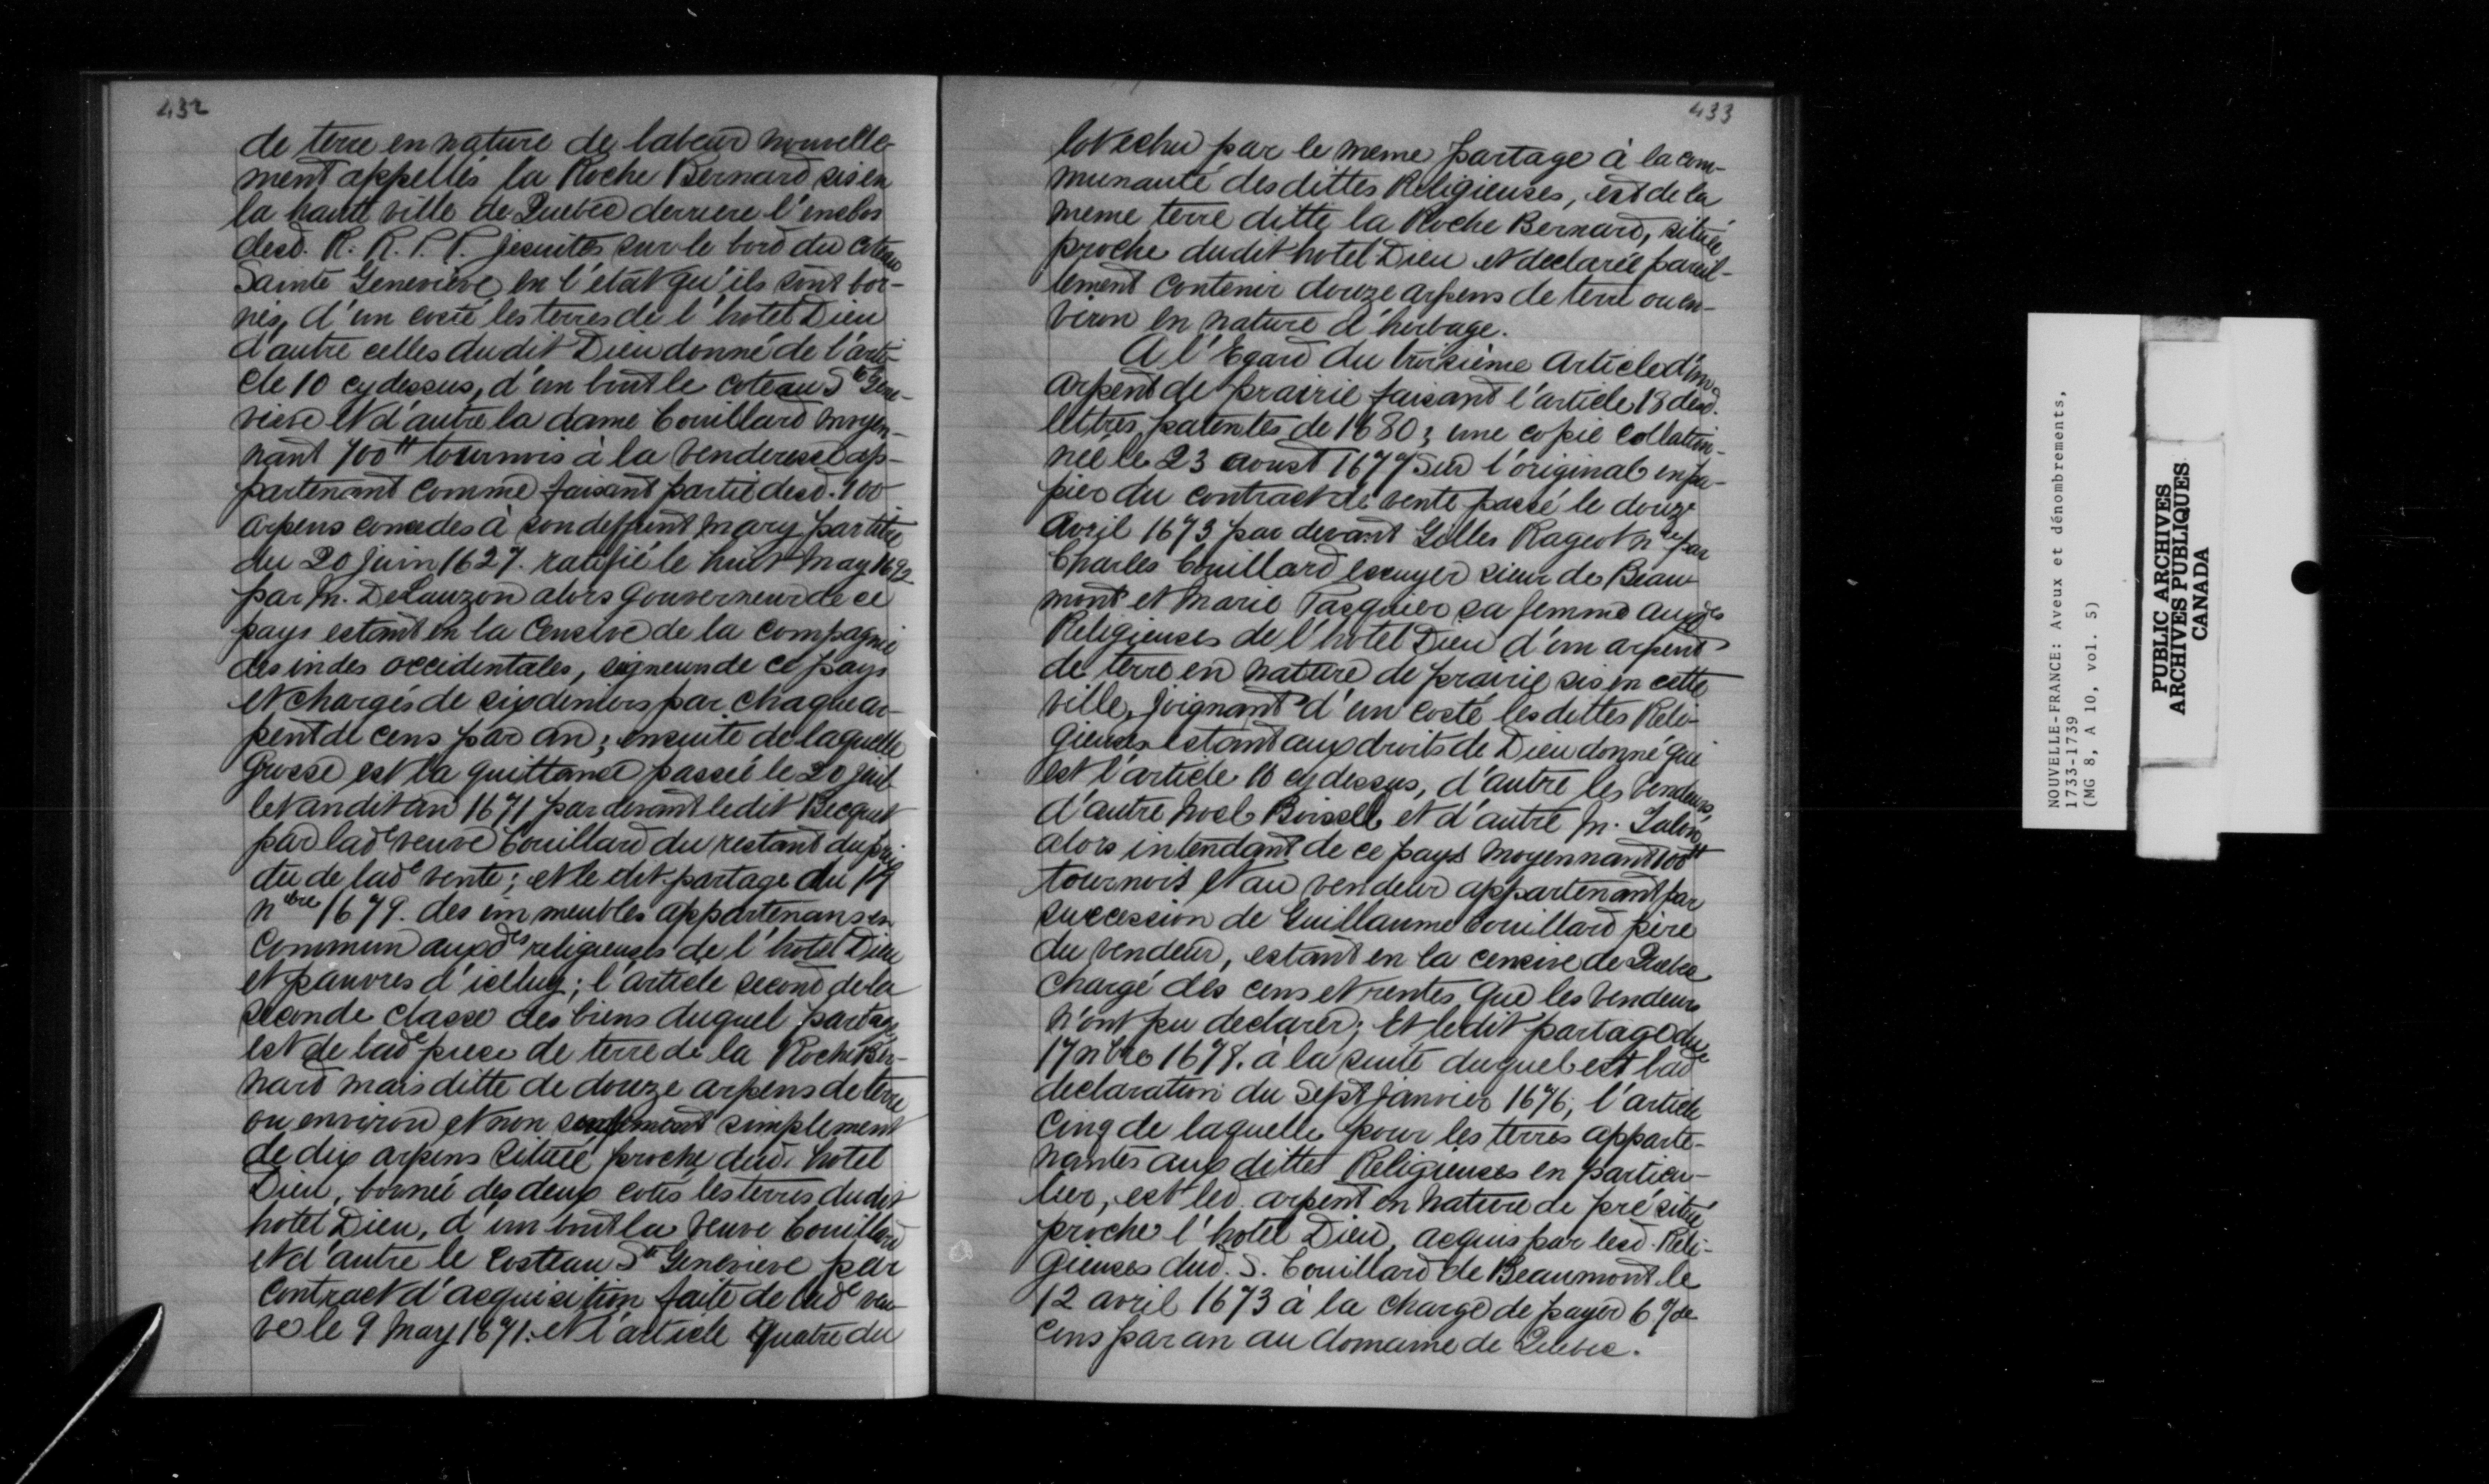 432
de terre en nature de labeur nouvelle-
ment appellés la Roche Bernard sis en
la haute ville de Quebec derriere l'enclos
desd. R. R. P. P. Jesuites sur le bord du coteau
Sainte Genevieve en l'état qu'ils sont bor-
nés, d'un costé les terres de l'hotel Dieu
d'autre celles dudit Dieu donné de l'arti-
cle 10 cy dessus, d'un bout le coteau Ste Gene-
vieve et d'autre la dame Couillard moyen-
nant 700tt tournois à la venderesse ap-
partenant comme faisant partie desd. 100
arpens concedes à son deffunt mary par titre
du 20 Juin 1627. ratifié le huit may 1692
par M. DeLauzon alors gouverneur de ce
pays estant en la Censive de la compagnie
des indes occidentales, seigneurs de ce pays
et chargés de six deniers par chaque ar-
pent de cens par an; ensuite de laquelle
Grosse est la quittance passée le 20 juil-
let audit an 1671 par devant ledit Becquet
par lade veuve Couillard du restant du prix
du de lade vente; et le dit partage du 17
nbre 1679. des immeubles appartenans en
commun auxdes religieuses de l'hotel Dieu
et pauvres d'icelluy; l'article second de la
seconde classe des biens duquel partage
est de lade piece de terre de la Roche Ber-
nard mais ditte de douze arpens de terre
ou environ et non seulement simplement
de dix arpens située proche dud. hotel
Dieu, bornée des deux cotés les terres dudit
hotel Dieu, d'un bout la veuve Couillard
et d'autre le costeau Ste Genevieve par
contract d'acquisition faite de lade veu-
ve le 9 may 1671. et l'article Quatre du
433
lot echu par le meme partage à la com-
munauté desdittes Religieuses, est de la
meme terre ditte la Roche Bernard, située
proche dudit hotel Dieu et declarée pareil-
lement contenir douze arpens de terre ou en-
viron en nature d'herbage.
A l'Egard du troisième Article d'un
arpent de prairie faisant l'article 18 desd.
lettres patentes de 1680; une copie collation-
née le 23 aoust 1677 sur l'original en pa-
pier du contract de vente passé le douze
avril 1673 par devant Gilles Rageot nre par
Charles Couillard escuyer sieur de Beau-
mont et Marie Pasquier sa femme auxdes
Religieuses de l'hotel Dieu d'un arpent
de terre en nature de prairie sis en cette
ville, joignant d'un costé lesdittes Reli-
gieuses estant aux droits de Dieu donné qui
est l'article 10 cy dessus, d'autre les vendeurs,
d'autre Noel Boissel et d'autre M. Talon
alors intendant de ce pays moyennant 100tt
tournois et au vendeur appartenant par
succession de Guillaume Couillard père
du vendeur, estant en la censive de Quebec
chargé des cens et rentes que les vendeurs
n'ont pu declarer; Et ledit partage du
17 nbre 1678. à la suite duquel est lade
declaration du Sept janvier 1676, l'article
Cinq de laquelle pour les terres apparte-
nantes aux dittes Religieuses en particu-
lier, est led. arpent en nature de pré situé
proche l'hotel Dieu, acquis par lesd. Reli-
gieuses dud. S. Couillard de Beaumont le
12 avril 1673 à la charge de payer 6 d de
Cens par an au domaine de Quebec.
NOUVELLE-FRANCE: Aveux et dénombrements,
1733-1739
(MG 8, A 10, vol. 5)
PUBLIC ARCHIVES
ARCHIVES PUBLIQUES
CANADA